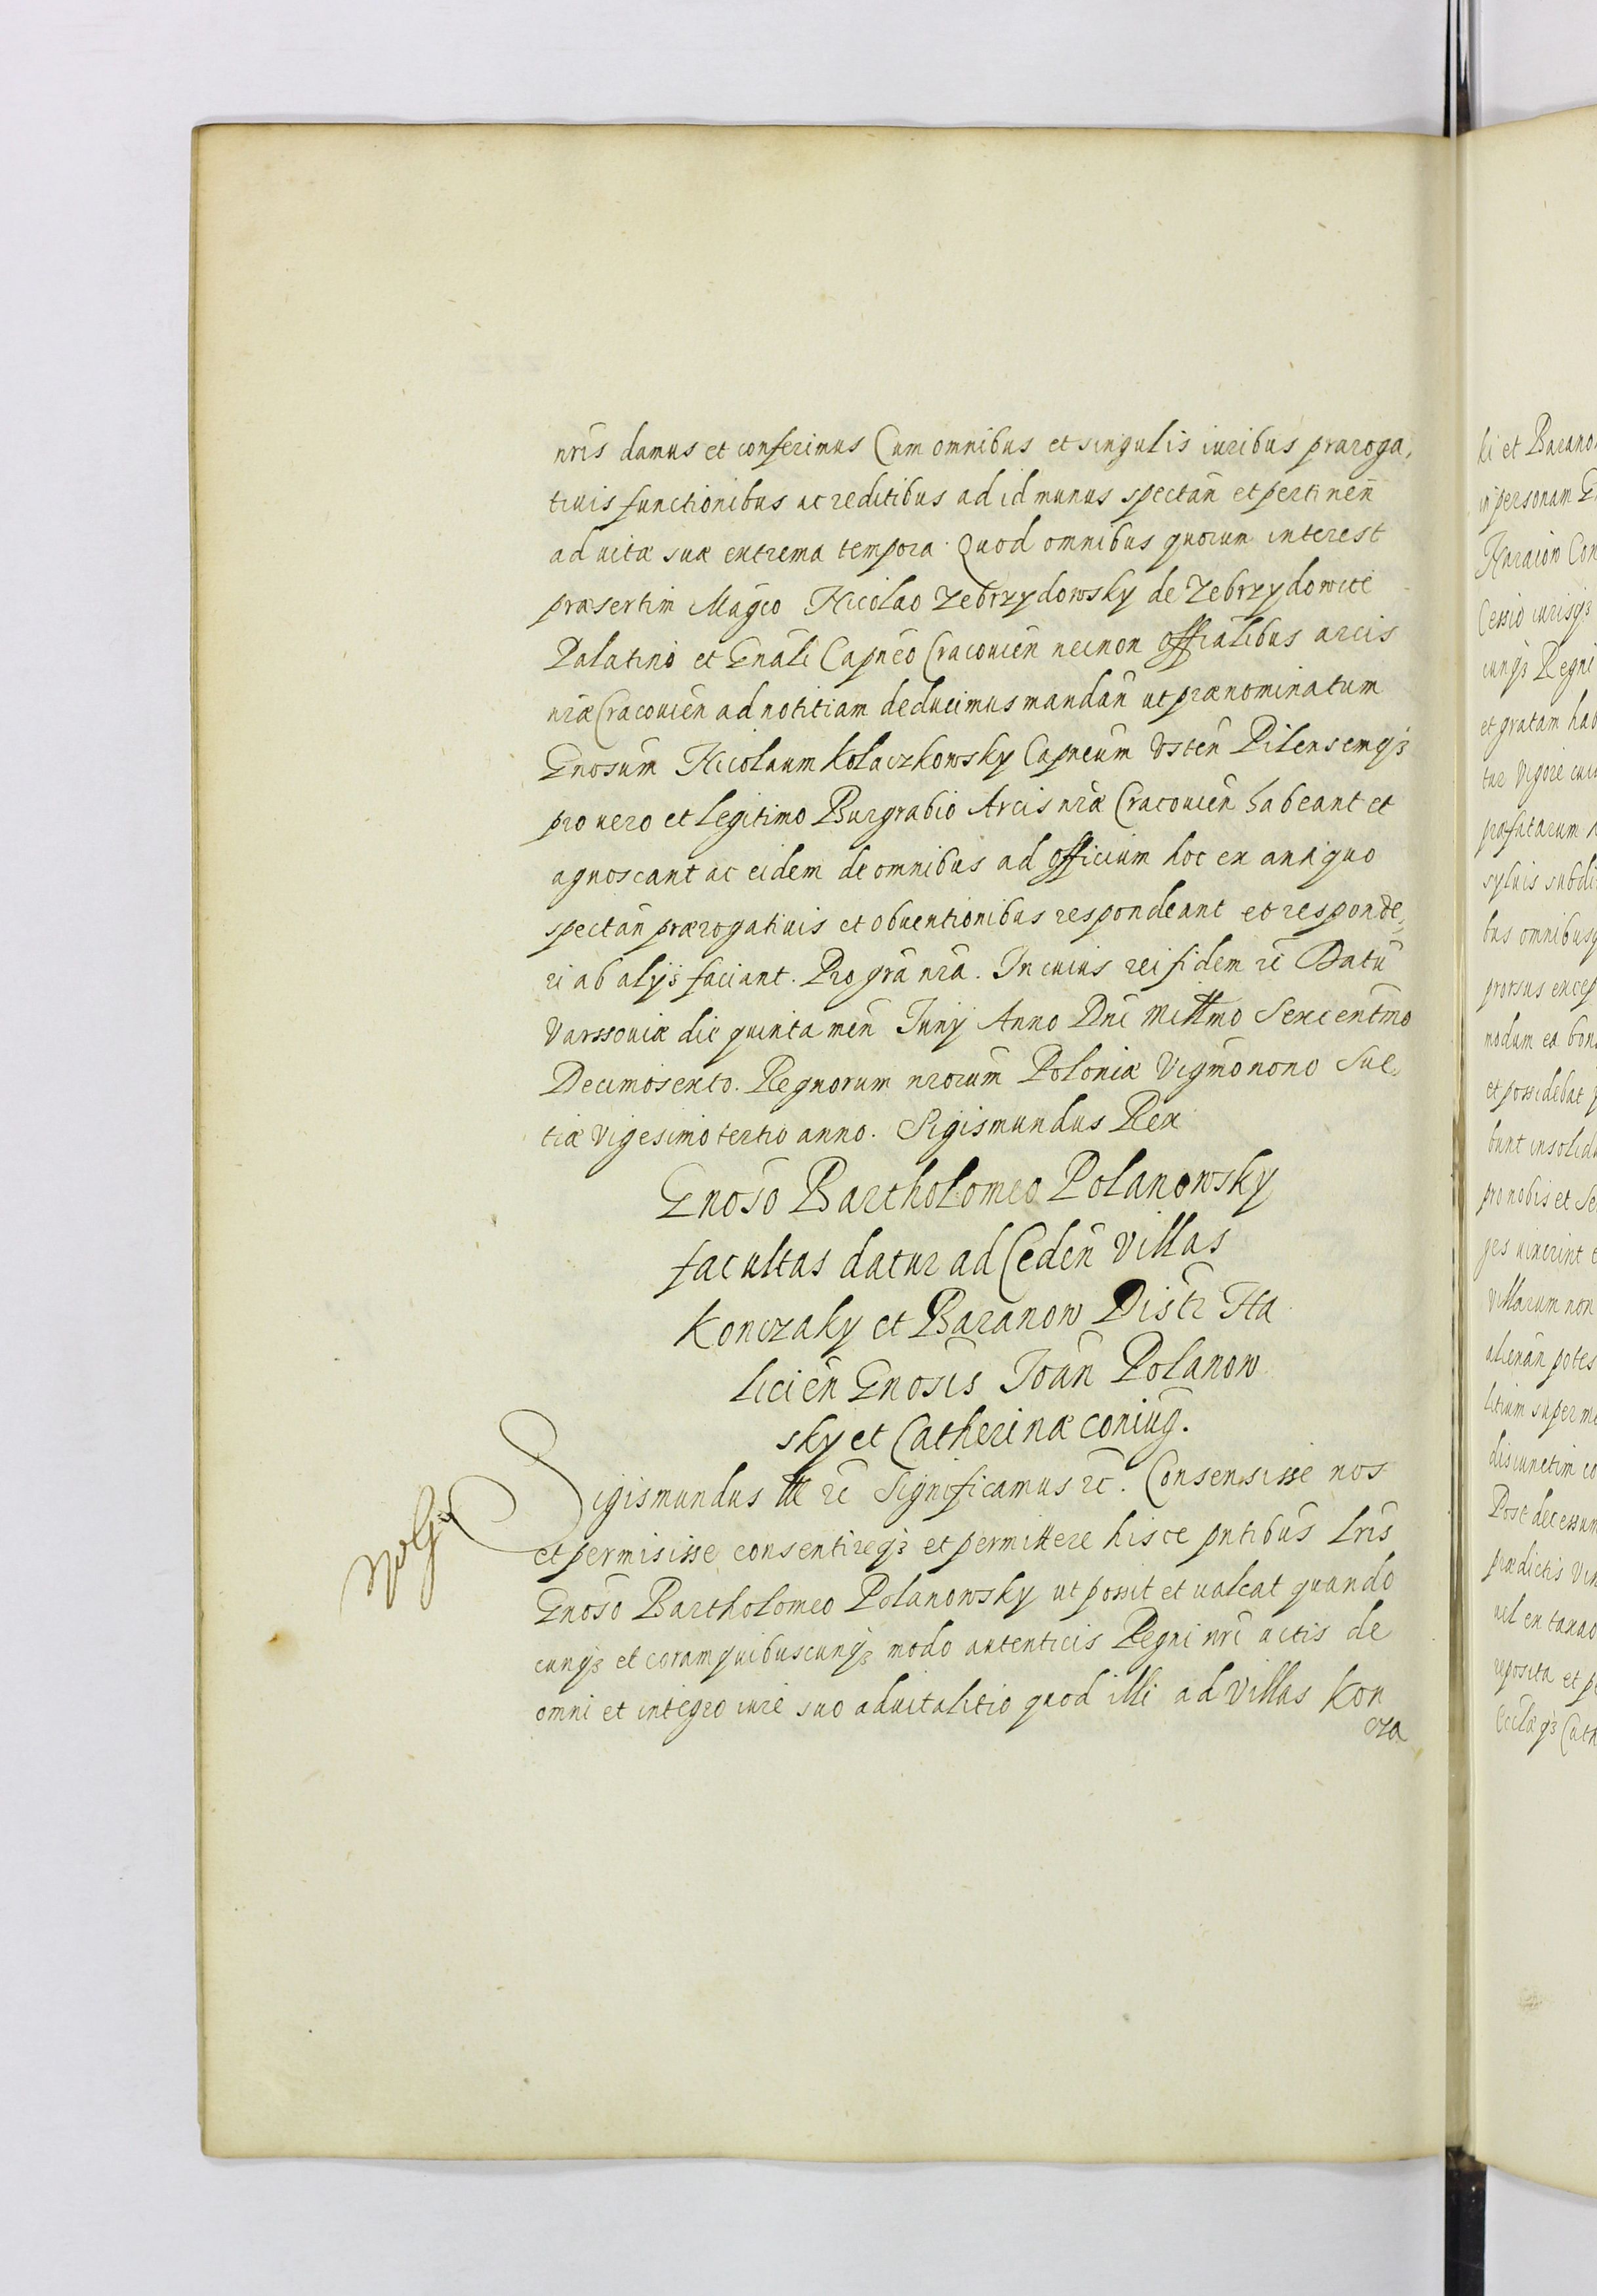 nris damus et conferimus Cum omnibus et singulis iuribus præroga,
tiuis functionibus ac reditibus ad id munus spectan̄ et pertinen̄
ad uitæ suæ extrema tempora. Quod omnibus quorum interest
præsertim Magco Nicolao Zebrzydowsky de Zebrzydowice
Palatino et Gnali Capneo Cracouien̄ necnon Offialibus arcis
nræ Cracouien̄ ad notitiam deducimus mandan̄ ut prænominatum
Gnosum Nicolaum Kolaczkowsky Capneum Usten̄ Pilensemqꝫ
pro uero et legitimo Burgrabio Arcis nræ Cracouien̄ habeant et
agnoscant ac eidem de omnibus ad officium hoc ex antiquo
spectan̄ prærogatiuis et obuentionibus respondeant et responde,
ri ab alijs faciant. Pro gra nra. In cuius rei fidem ꝛc̄ Datū
Varssouiæ die quinta men̄ Iunij Anno Dni Millmo Sexcentmo
Decimosexto. Regnorum nrorum Poloniæ Vigmonono Sue,
tiæ Vigesimo tertio anno. Sigismundus Rex
Gnoso Bartholomeo Polanowsky
facultas datur ad Ceden̄ Villas
Konczaky et Baranow Distr Ha
licien̄ Gnosis Ioan̄ Polanow
sky et Catherinæ coniug.
Sigismundus III ꝛc̄ Significamus ꝛc̄. Consensisse nos
et permisisse consentireqꝫ et permittere hisce pntibus Lris
Gnoso Bartholomeo Polanowsky ut possit et ualeat quando
cunqꝫ et coram quibuscunqꝫ modo autenticis Regni nri actis de
omni et integro iure suo aduitalitio quod illi ad Villas Kon
cza
ki et Barano
in personam G
Con
Cessio iurisqꝫ
cunqꝫ Regni
et gratam hab
tue Vigore
præfatarum
syluis subdi
bus omnibusq
prorsus excep
modum ea bon
et possidebat
bunt insolid
pro nobis et Se
ges uixerint
Villarum non
alienan̄ potes
litium super
disiunctim co
Post decessum
prædictis
uel ex
reposita et